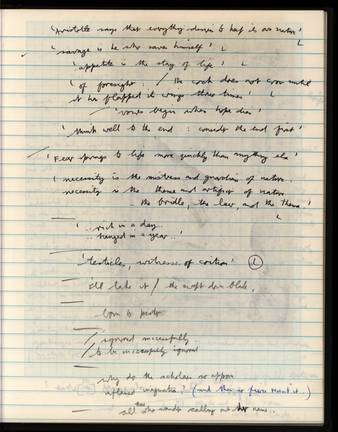 'Aristotle says that everything desires to keep its own nature' L
'savage is he who saves himself' L
'appetite is the stay of life' L
'of foresight: / the cock does not crow until
it has flapped its wings three times' L
'vows begin when hope dies'
'think well to the end: consider the end first'
'Fear springs to life more quickly than anything else'
'necessity is the mistress and guardian of nature.
necessity is the theme and artificer of nature
the bridle, the law, and the theme.' L
'.. rich in a day..
.. hanged in a year..'
'testicles, witnesses of coition' L
old lake it / the swept
born to
/ ignored successfully
to be successfully ignored
why do the scholars so
(and then
all who wander calling me her name..